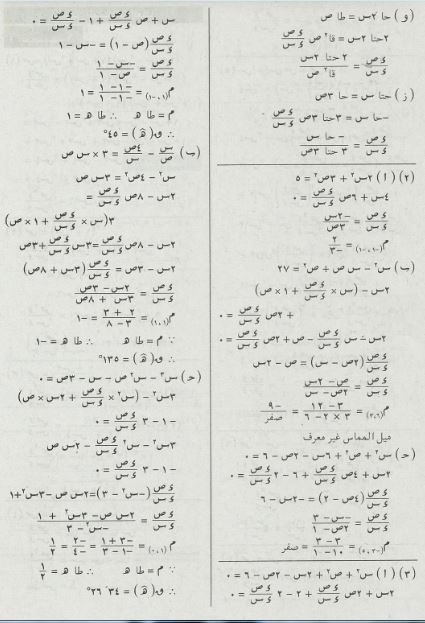 ( و ) حا ٢س = طا ص
٢حتا ٢س = قا٢ ص ءص/ءس
ءص/ءس = ٢ حتا ٢س / قا٢ ص
( ز ) حتا س = حا ٣ص
-حا س = ٣حتا ٣ص ءص/ءس
ءص/ءس = - حا س / ٣ حتا ٣ص
(٢) ( ا ) ٢س٢ + ٣ص٢ = ٥
٤س + ٦ص ءص/ءس = ٠
ءص/ءس = -٢س / ٣ص
م(-١،-١) = -٢/٣
(ب) س٢ - س ص + ص٢ = ٢٧
٢س - (س × ءص/ءس + ١ × ص)
+ ٢ص ءص/ءس = ٠
٢س - س ءص/ءس - ص + ٢ص ءص/ءس = ٠
ءص/ءس (٢ص - س) = ص - ٢س
ءص/ءس = ص - ٢س / ٢ص - س
م(٣،٦) = ٣ - ١٢ / ٣ × ٢ - ٦ = -٩ / صفر
ميل المماس غير معرف
(حـ) س٢ + ص٢ + ٦س - ٢ص - ٦ = ٠
ءص/ءس = -س - ٣
م = ٣ - ٣ = صفر
(٣) ( ا ) س٢ + ص٢ + ٢س - ٢ص - ٦ = ٠
٢س + ٢ص ءص/ءس + ٢ - ٢ ءص/ءس = ٠
س + ص ءص/ءس + ١ - ءص/ءس = ٠
ءص/ءس (ص - ١) = -س - ١
ءص/ءس = -س - ١ / ص - ١
م(١،-١) = -١ - ١ / -١ - ١ = ١
م = طا هـ ∴ طا هـ = ١
∴ ق(هـ) = ٤٥°
(ب) س/ص - ٤ص/س = ٣ × س ص
س٢ - ٤ص٢ = ٣س ص
٢س - ٨ص ءص/ءس =
٣(س × ءص/ءس + ١ × ص)
٢س - ٨ص ءص/ءس = ٣س ءص/ءس + ٣ص
٢س - ٣ص = ءص/ءس (٣س + ٨ص)
ءص/ءس = ٢س - ٣ص / ٣س + ٨ص
م = ٢ + ٣ / ٣ - ٨ = -١
∵ م = طا هـ ∴ طا هـ = -١
∴ ق(هـ) = ١٣٥°
(حـ) س٣ - س٢ ص - س - ٣ص = ٠
٣س٢ - (س٢ × ءص/ءس + ٢س × ص)
- ١ - ٣ ءص/ءس = ٠
٣س٢ - س٢ ءص/ءس - ٢س ص
- ١ - ٣ ءص/ءس = ٠
ءص/ءس (-س٢ - ٣) = ٢س ص - ٣س٢ + ١
ءص/ءس = ٢س ص - ٣س٢ + ١ / -س٢ - ٣
م(١،٠) = -٣ + ١ / -١ - ٣ = -٢/-٤ = ١/٢
∵ م = طا هـ ∴ طا هـ = ١/٢
∴ ق(هـ) = ٣٤َ ٢٦°